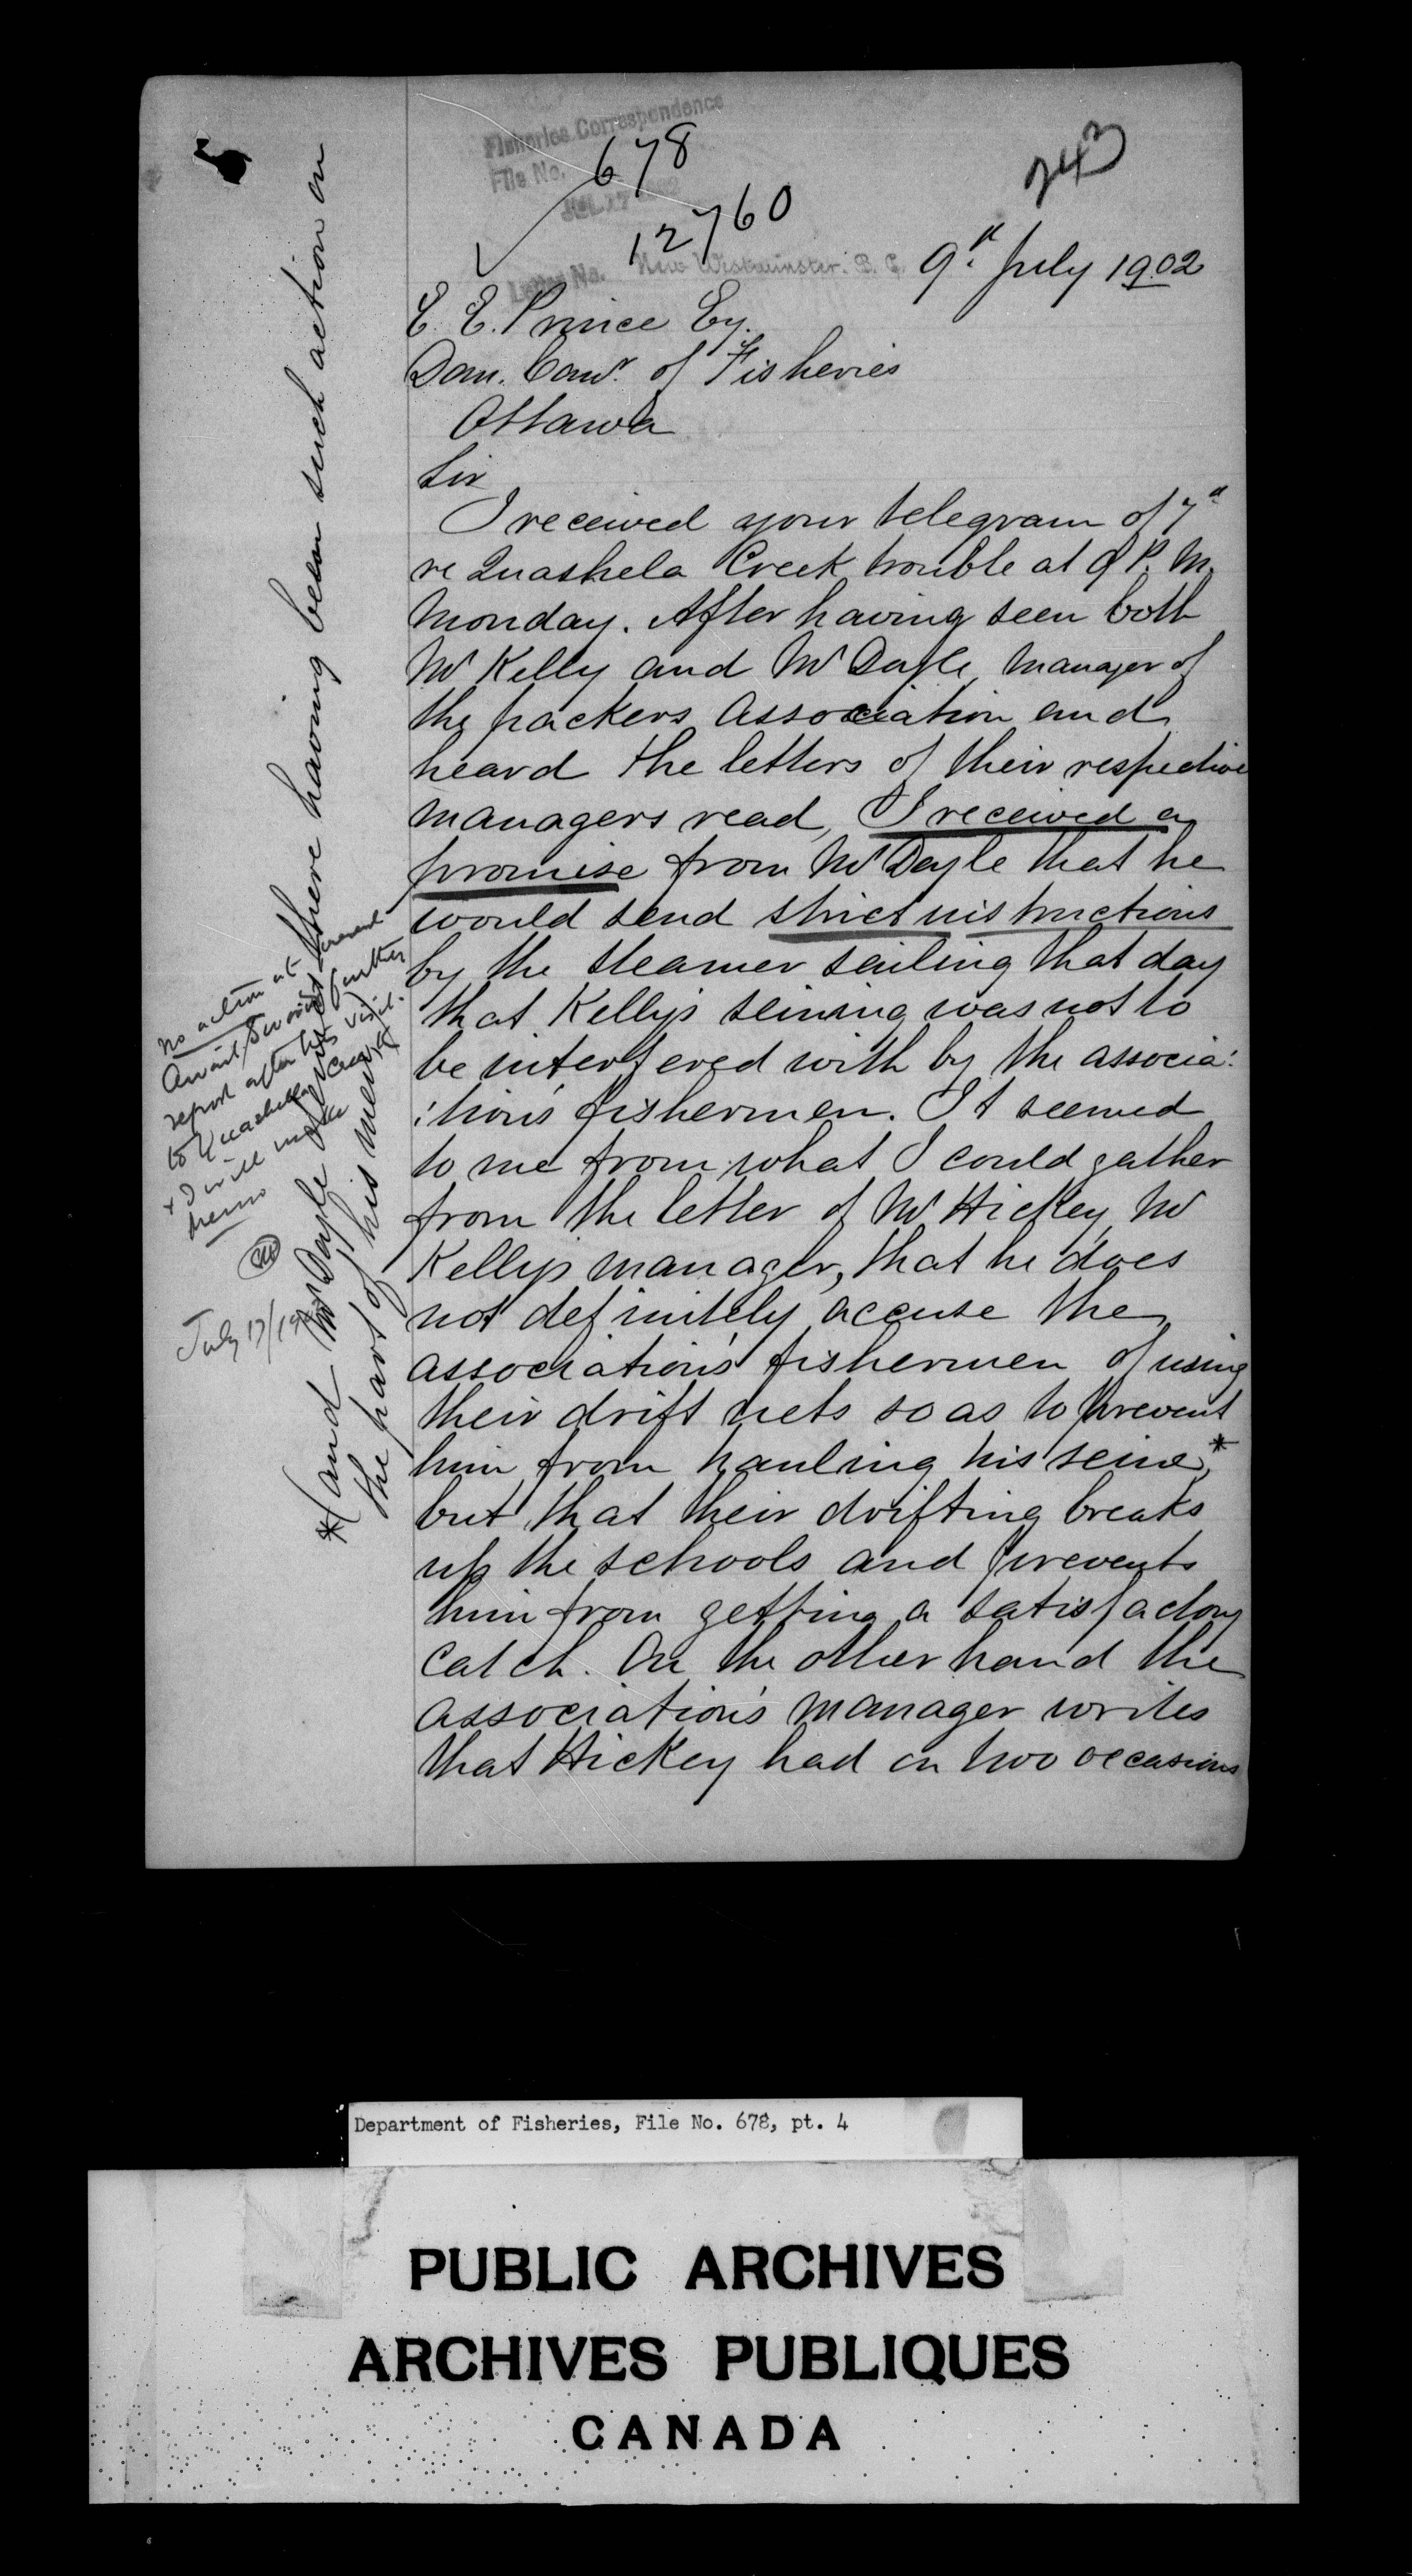 Fisheries Correspondence
678
File No.
JUL 17 1902
243
12760
Letter No.
New Westminster, B. C. 9th July 1902
E. E. Prince Esq.
Dom. Comr. of Fisheries
Ottawa
Sir
I received your telegram of 7th
re Quashela Creek trouble at 9 P.M.
Monday. After having seen both
Mr Kelly and Mr Doyle, manager of
the packers association and
heard the letters of their respective
managers read, I received a
promise from Mr Doyle that he
would send strict instructions
by the steamer sailing that day
that Kelly's seining was not to
be interfered with by the associa:
:tion's fishermen. It seemed
to me from what I could gather
from the letter of Mr Hickey, Mr
Kelly's manager, that he does
not definitely accuse the
association's fishermen of using
their drift nets so as to prevent
him from hauling his seine,*
but that their drifting breaks
up the schools and prevents
him from getting a satisfactory
catch. On the other hand the
association's manager writes
that Hickey had on two occasions
*(and Mr Doyle there having been such action on
the part of his men)
No action at present
Await Sword's further
report after his visit
to Quashella Creek
& I will make
memo
July 17/1902
Department of Fisheries, File No. 678, pt. 4
PUBLIC ARCHIVES
ARCHIVES PUBLIQUES
CANADA